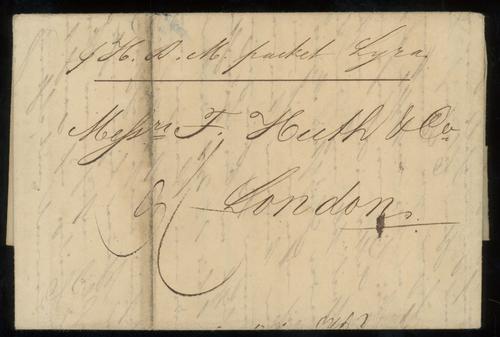 p H. B. M. packet Lyra
Messrs F. Huth & Co
London